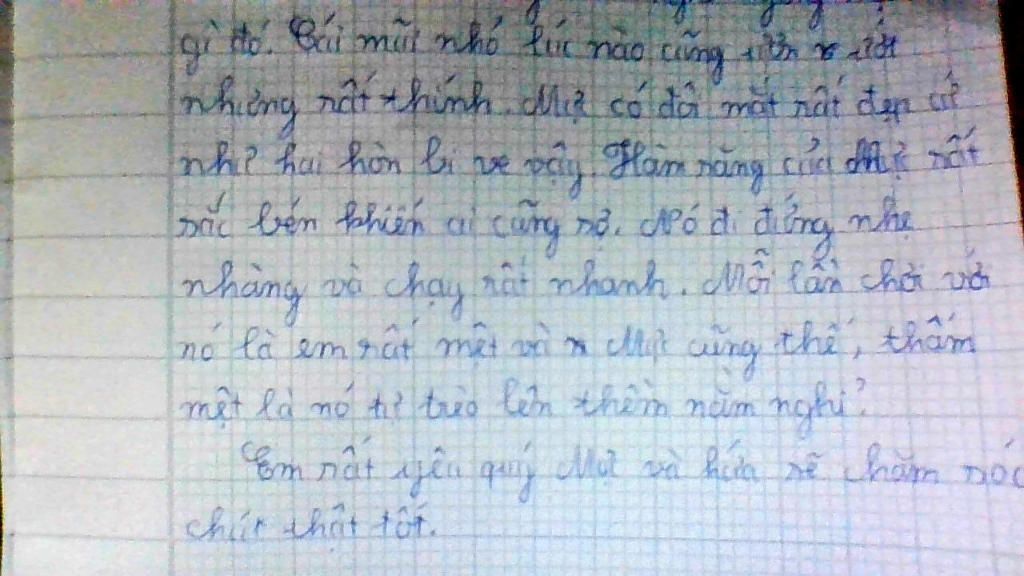 gì đó. Cái mũi nhỏ lúc nào cũng ươn ướt
nhưng rất thính. Mực có đôi mắt rất đẹp cứ
như hai hòn bi ve vậy. Hàm răng của Mực rất
sắc bén khiến ai cũng sợ. Nó đi đứng nhẹ
nhàng và chạy rất nhanh. Mỗi lần chơi với
nó là em rất mệt và Mực cũng thế, thấm
mệt là nó tự trèo lên thềm nằm nghỉ.
Em rất yêu quý Mực và hứa sẽ chăm sóc
chút thật tốt.